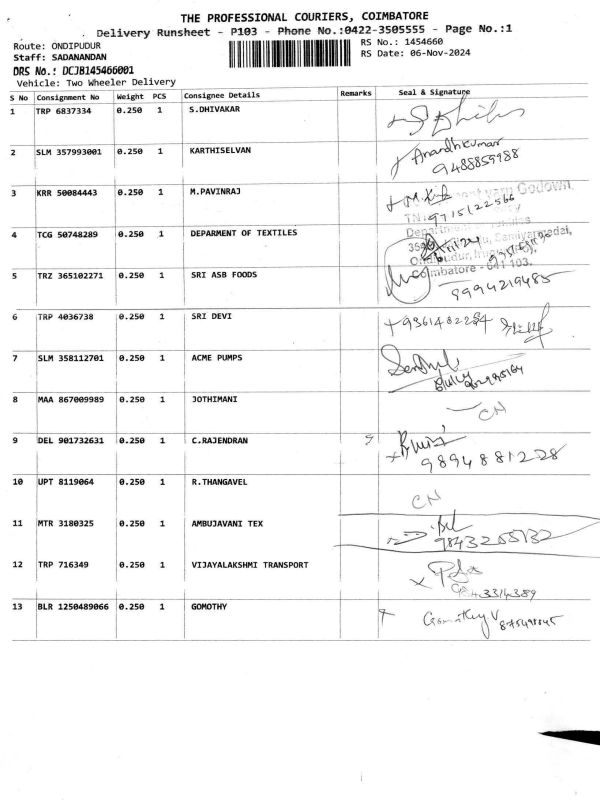 THE PROFESSIONAL COURIERS, COIMBATORE
Delivery Runsheet - P103 - Phone No.:0422-3505555 - Page No.:1
Route: ONDIPUDUR RS No.: 1454660
Staff: SADANANDAN RS Date: 06-Nov-2024
DRS No.: DCJB145466001
Vehicle: Two Wheeler Delivery
S No Consignment No Weight PCS Consignee Details Remarks Seal & Signature
1 TRP 6837334 0.250 1 S.DHIVAKAR
2 SLM 357993001 0.250 1 KARTHISELVAN Anandhkumar
9488859988
3 KRR 50084443 0.250 1 M.PAVINRAJ Godown,
9715122566
4 TCG 50748289 0.250 1 DEPARMENT OF TEXTILES
Coimbatore - 641 103.
5 TRZ 365102271 0.250 1 SRI ASB FOODS 9994219485
6 TRP 4036738 0.250 1 SRI DEVI
7 SLM 358112701 0.250 1 ACME PUMPS
8 MAA 867009989 0.250 1 JOTHIMANI CN
9 DEL 901732631 0.250 1 C.RAJENDRAN
9894881228
10 UPT 8119064 0.250 1 R.THANGAVEL CN
11 MTR 3180325 0.250 1 AMBUJAVANI TEX
12 TRP 716349 0.250 1 VIJAYALAKSHMI TRANSPORT
13 BLR 1250489066 0.250 1 GOMOTHY Gomathy V